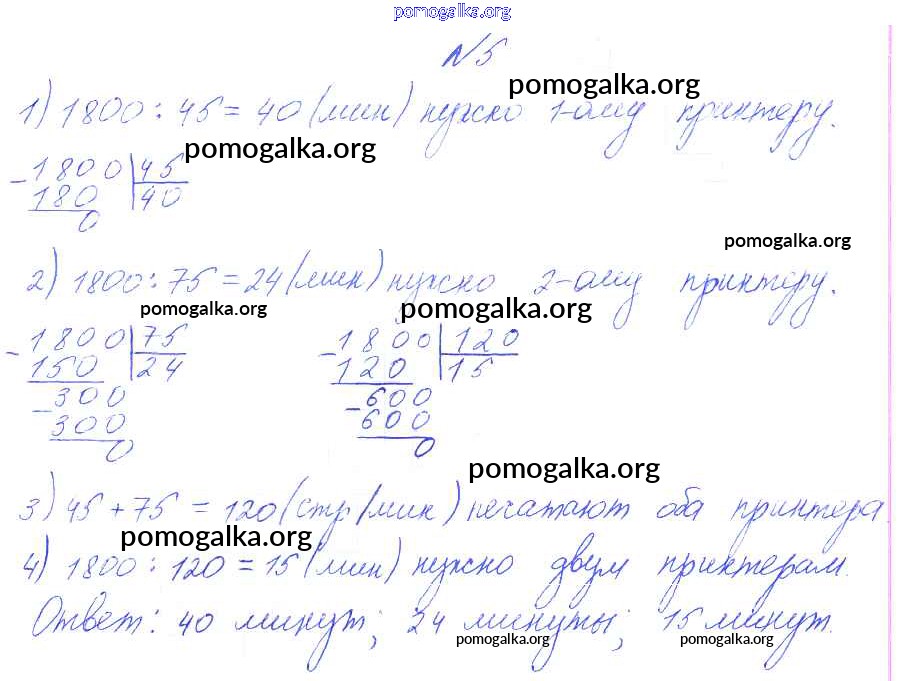 pomogalka.org
N5
pomogalka.org
1) 1800 : 45 = 40 (мин) нужно 1-ому принтеру.
pomogalka.org
- 1800 | 45
180 | 40
0
pomogalka.org
2) 1800 : 75 = 24 (мин) нужно 2-ому принтеру.
pomogalka.org pomogalka.org
- 1800 | 75 - 1800 | 120
150 | 24 120 | 15
- 300 - 600
300 600
0 0
pomogalka.org
3) 45 + 75 = 120 (стр/мин) печатают оба принтера
pomogalka.org
4) 1800 : 120 = 15 (мин) нужно двум принтерам.
Ответ: 40 минут; 24 минуты; 15 минут.
pomogalka.org pomogalka.org